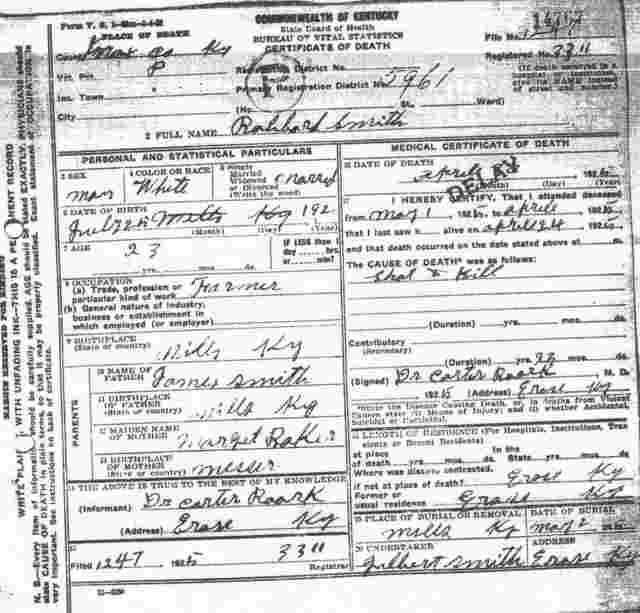 Form V. S.
COMMONWEALTH OF KENTUCKY
State Board of Health
BUREAU OF VITAL STATISTICS
CERTIFICATE OF DEATH
PLACE OF DEATH
File No.
County Knox Co Ky
Registered No. 3311
Vot. Pct. 8
Registration District No.
Inc. Town
Primary Registration District No. 5961
City
(No. St., Ward)
2 FULL NAME Smith
PERSONAL AND STATISTICAL PARTICULARS
3 SEX man
4 COLOR OR RACE White
5 Single Married Widowed or Divorced (Write the word)
6 DATE OF BIRTH
Mills Ky 192
(Month) (Day) (Year)
7 AGE 23
yrs. mos. ds.
IF LESS than 1 day hrs. or min?
8 OCCUPATION
(a) Trade, profession or particular kind of work Farmer
(b) General nature of industry, business or establishment in which employed (or employer)
9 BIRTHPLACE (State or country) Mills Ky
PARENTS
10 NAME OF FATHER James Smith
11 BIRTHPLACE OF FATHER (State or country) Mills Ky
12 MAIDEN NAME OF MOTHER Marget Baker
13 BIRTHPLACE OF MOTHER (State or country) Messer
14 THE ABOVE IS TRUE TO THE BEST OF MY KNOWLEDGE
(Informant) Dr Carter Roark
(Address) Erose Ky
15
Filed 1247 1925 3311
Registrar
MEDICAL CERTIFICATE OF DEATH
16 DATE OF DEATH
April
(Month) (Day) (Year)
DELAY
17 I HEREBY CERTIFY, That I attended deceased
from May 1 to April
that I last saw h alive on April 24
and that death occurred on the date stated above at m.
The CAUSE OF DEATH* was as follows:
Shot & Kill
(Duration) yrs. mos. ds.
Contributory
(Secondary)
(Duration) yrs. mos. ds.
(Signed) Dr Carter Roark M. D.
(Address) Erose Ky
*State the Disease Causing Death, or, in deaths from Violent Causes state (1) Means of Injury; and (2) whether Accidental, Suicidal or Homicidal.
18 LENGTH OF RESIDENCE (For Hospitals, Institutions, Transients or Recent Residents)
At place of death yrs. mos. ds. In the State yrs. mos. ds.
Where was disease contracted, if not at place of death? Erose Ky
Former or usual residence Erose Ky
19 PLACE OF BURIAL OR REMOVAL Mills Ky
DATE OF BURIAL May 2
20 UNDERTAKER Gilbert Smith
ADDRESS Erose Ky
MARGIN RESERVED FOR BINDING
WRITE PLAINLY WITH UNFADING INK—THIS IS A PERMANENT RECORD
N. B.—Every item of information should be carefully supplied. AGE should be stated EXACTLY. PHYSICIANS should
state CAUSE OF DEATH in plain terms, so that it may be properly classified. Exact statement of OCCUPATION is
very important. See instructions on back of certificate.